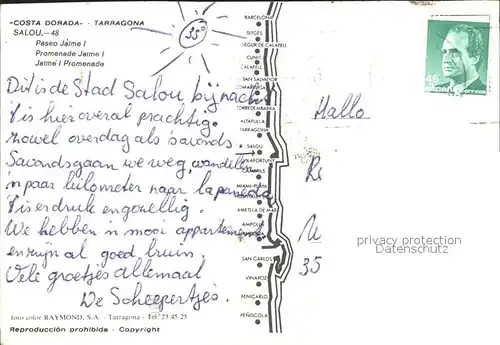 «COSTA DORADA» - TARRAGONA
SALOU.—48
Paseo Jaime I
Promenade Jaime I
Jaime I Promenade
35°
Dit is de Stad Salou, bij nacht
't is hier overal prachtig.
zowel overdag als 's avonds.
Savonds gaan we weg, wandelen
'n paar kilometer naar la paneda
't is er druk en gezellig.
We hebben 'n mooi appartement
en zijn al goed bruin.
Vele groetjes allemaal
De Scheepertjes.
foto color RAYMOND, S.A. - Tarragona - Tel. 23 45 25
Reproducción prohibida - Copyright
BARCELONA
SITGES
SEGUR DE CALAFELL
CUNIT
CALAFELL
SAN SALVADOR
TORREDEMBARRA
ALTAFULLA
TARRAGONA
SALOU
MIAMI-PLAYA
AMETLLA DE MAR
AMPOLLA
SAN CARLOS
VINAROZ
BENICARLO
PEÑISCOLA
45
España correos
Hallo
35
privacy protection
Datenschutz